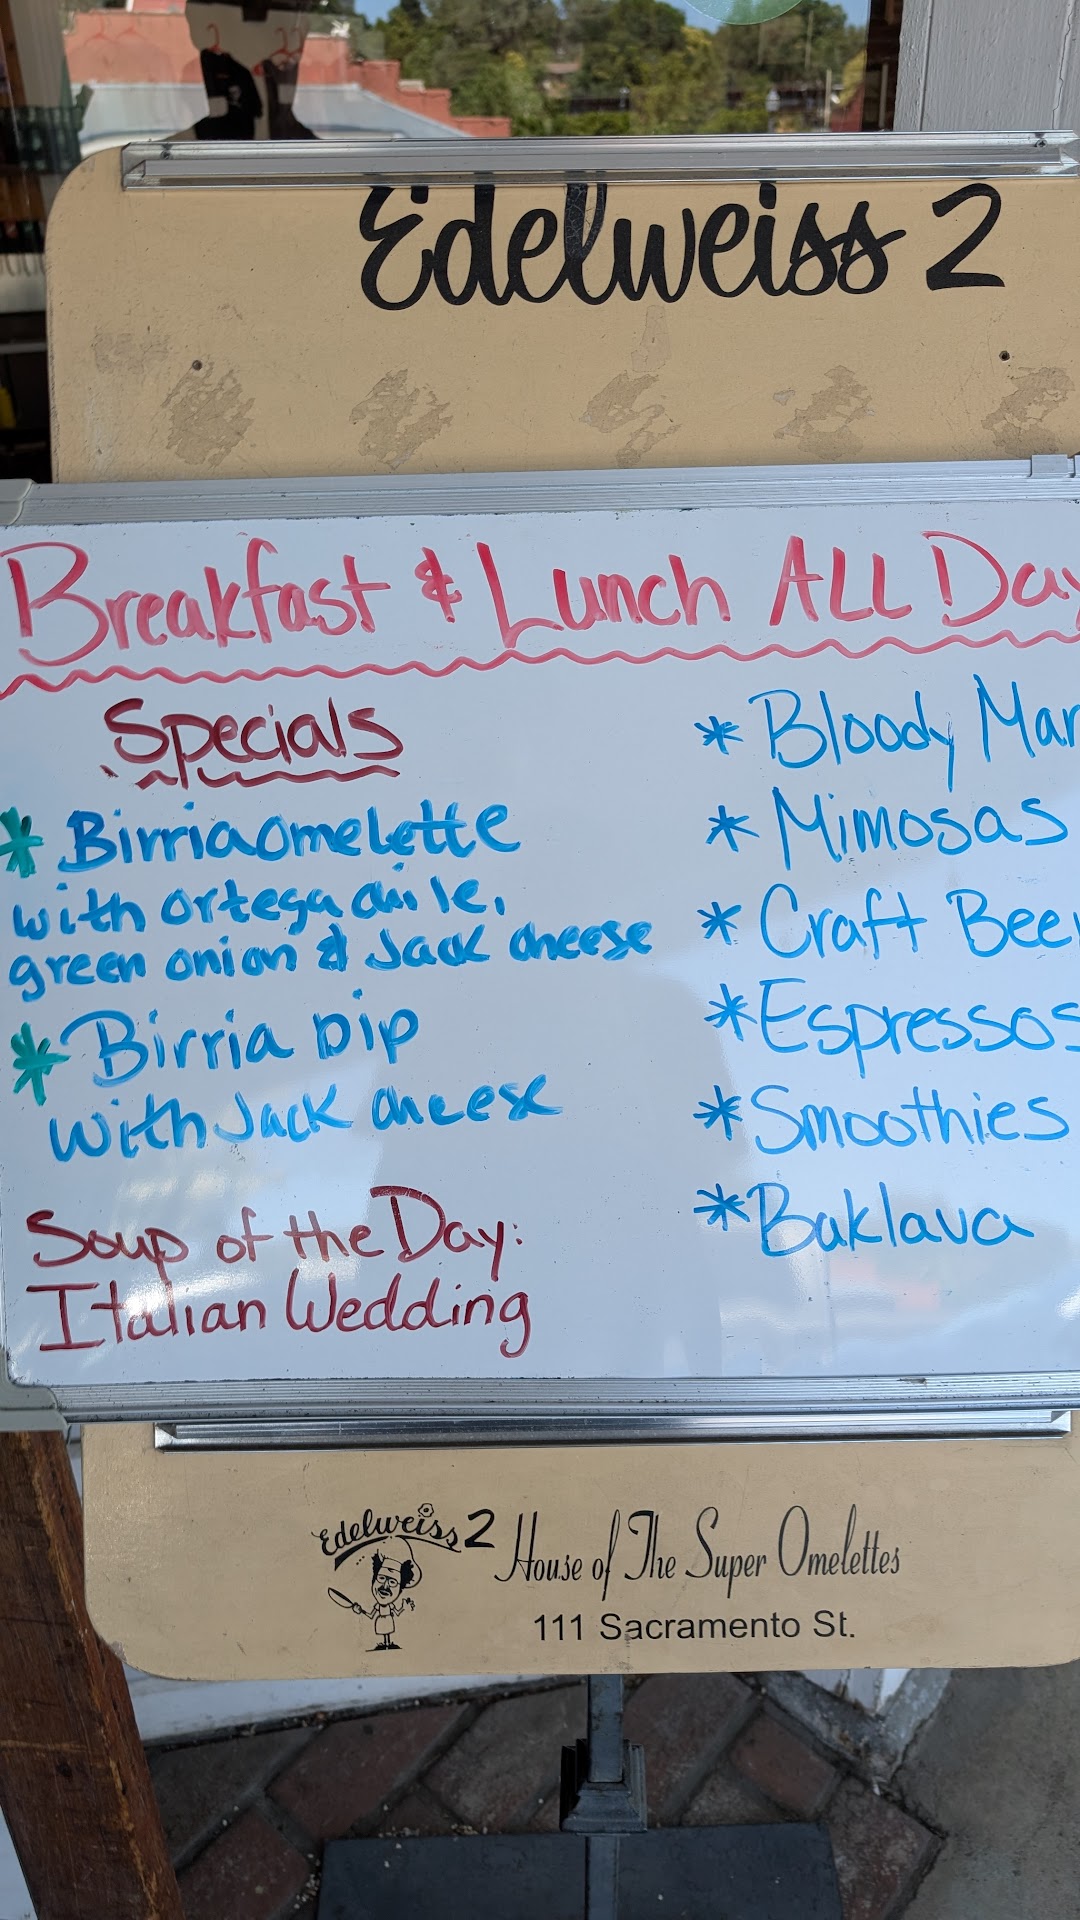 Edelweiss 2
Breakfast & Lunch ALL Day
Specials
* Birria omelette
with ortega chile,
green onion & Jack cheese
* Birria Dip
with Jack cheese
Soup of the Day:
Italian Wedding
* Bloody Mar
* Mimosas
* Craft Bee
* Espressos
* Smoothies
* Baklava
Edelweiss 2
House of The Super Omelettes
111 Sacramento St.